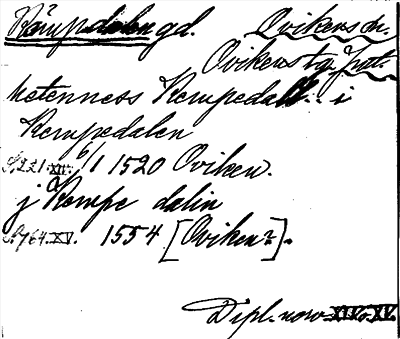 Kömpdalen gd. Ovikens sn.
Ovikens tg Jmtl.
hetenness Kempedall.. i
Kempedalen
S. 221. XIV. 6/1 1520 Oviken.
j Kempe dalin
S. 764. XV. 1554 [Oviken?].
Dipl. norv. XIV o. XV.